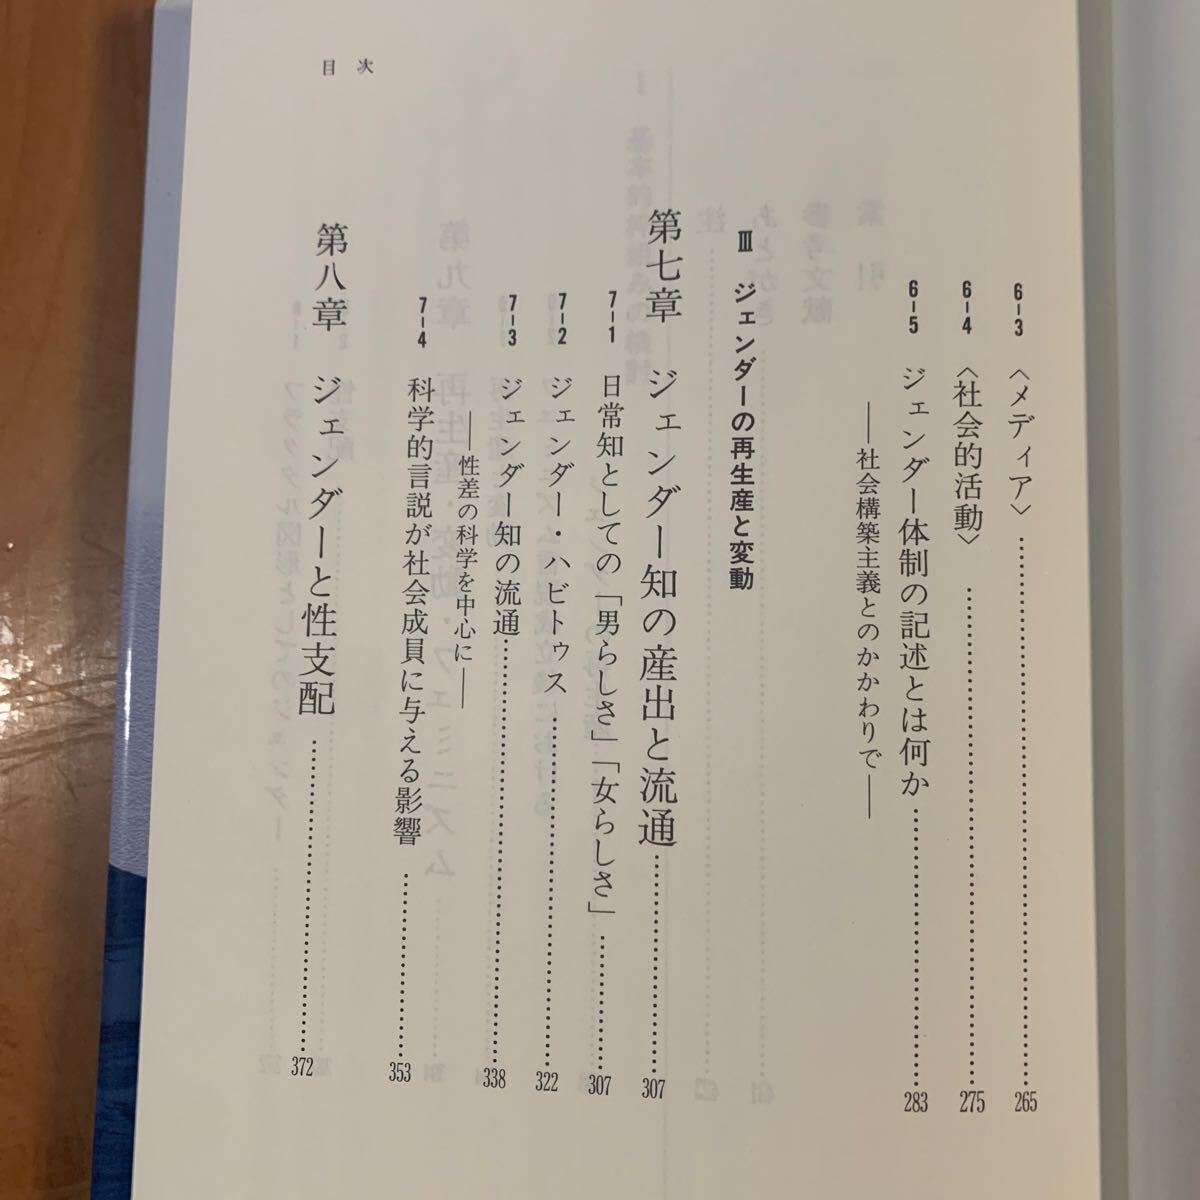 目次
6-3 〈メディア〉……265
6-4 〈社会的活動〉……275
6-5 ジェンダー体制の記述とは何か……283
――社会構築主義とのかかわりで――
Ⅲ ジェンダーの再生産と変動
第七章 ジェンダー知の産出と流通……307
7-1 日常知としての「男らしさ」「女らしさ」……307
7-2 ジェンダー・ハビトゥス……322
7-3 ジェンダー知の流通……338
――性差の科学を中心に――
7-4 科学的言説が社会成員に与える影響……353
第八章 ジェンダーと性支配……372